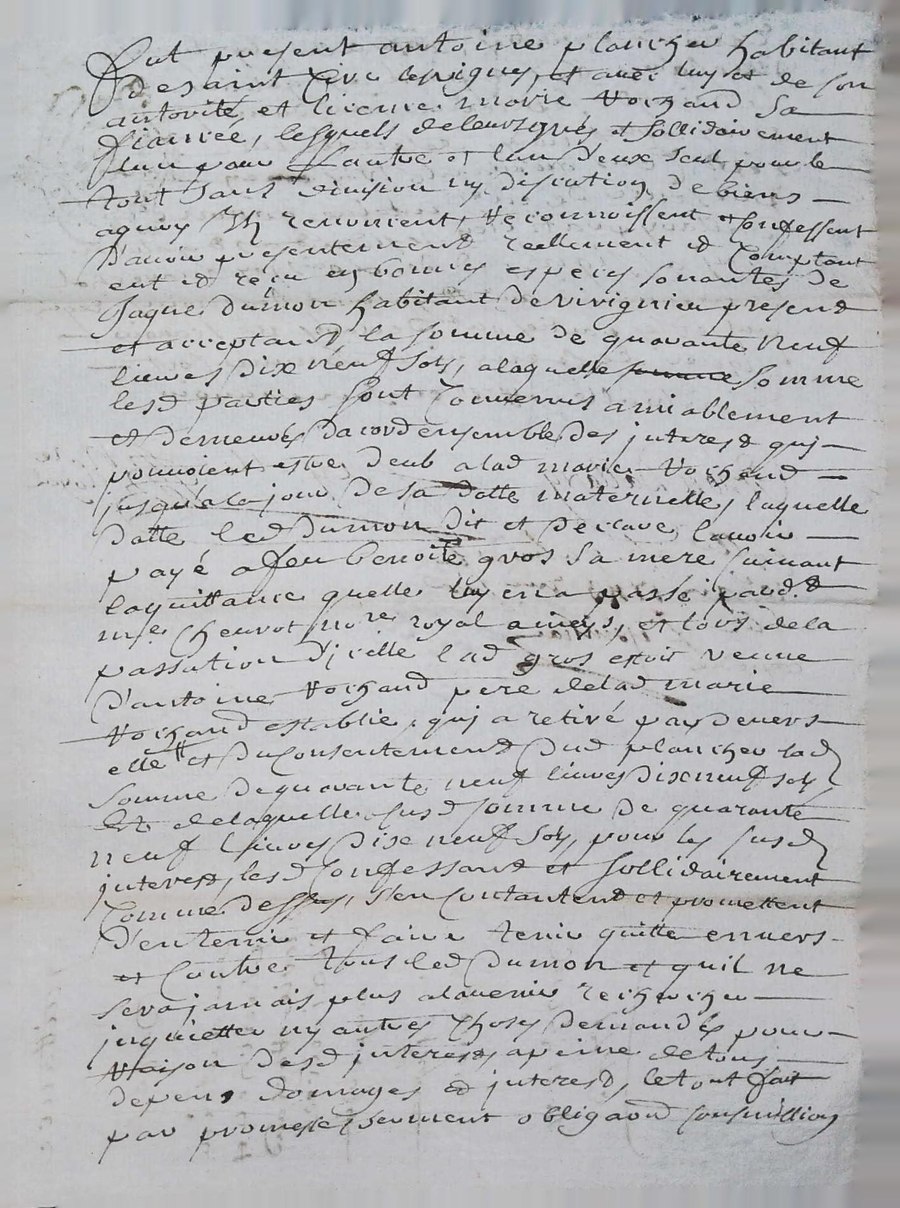 fut present antoine plancher habitant
de saint et avec luy et de son
autorité et licence marie Vochand sa
fiancee, lesquels de leurs grés et sollidairement
l'un pour l'autre et l'un d'eux seul pour le
tout sans division ny discution de biens
aquoy Ils renoncent, reconnoissent et Confessent
d'avoir presentement reellement et Comptant
eut et reçu en bonnes especes sonantes de
Jaque dumon habitant de vivignieu presend
et acceptand, la somme de quarante neuf
livres dix neuf sols, a laquelle somme
lesd parties sont Convenus amiablement
et demeurés dacord ensemble des interest qui
pouvoient estre deub a lad marie Vochand
jusqu'a ce jour de sa dotte maternelle, laquelle
dotte led dumon dit et declare lavoir
payé a feu benoite gros sa mere suivant
la quittance quelle luy en a passé pard.t
me Cheuvot nore royal , et lors de la
passation d'jcelle lad gros estoit veuve
d'antoine Vochand pere de lad marie
Vochand establie, qui a retiré par devers
elle et du Consentement dud plancher lad
somme de quarante neuf livres dix neuf sols
Et de laquelle susd somme de quarante
neuf livres dix neuf sols, pour les susd
interest, lesd Confessant et sollidairement
Comme dessus, s'en Contantend et promettent
d'en tenir et faire tenir quitte envers
et Contre tous led dumon et quil ne
sera jamais plus alavenir rechercher
jnquietter ny autres Choses demandés pour
Raison desd jnterest apeine de tous
depens domages et jnterest, le tout fait
par promesse, serment obligaond